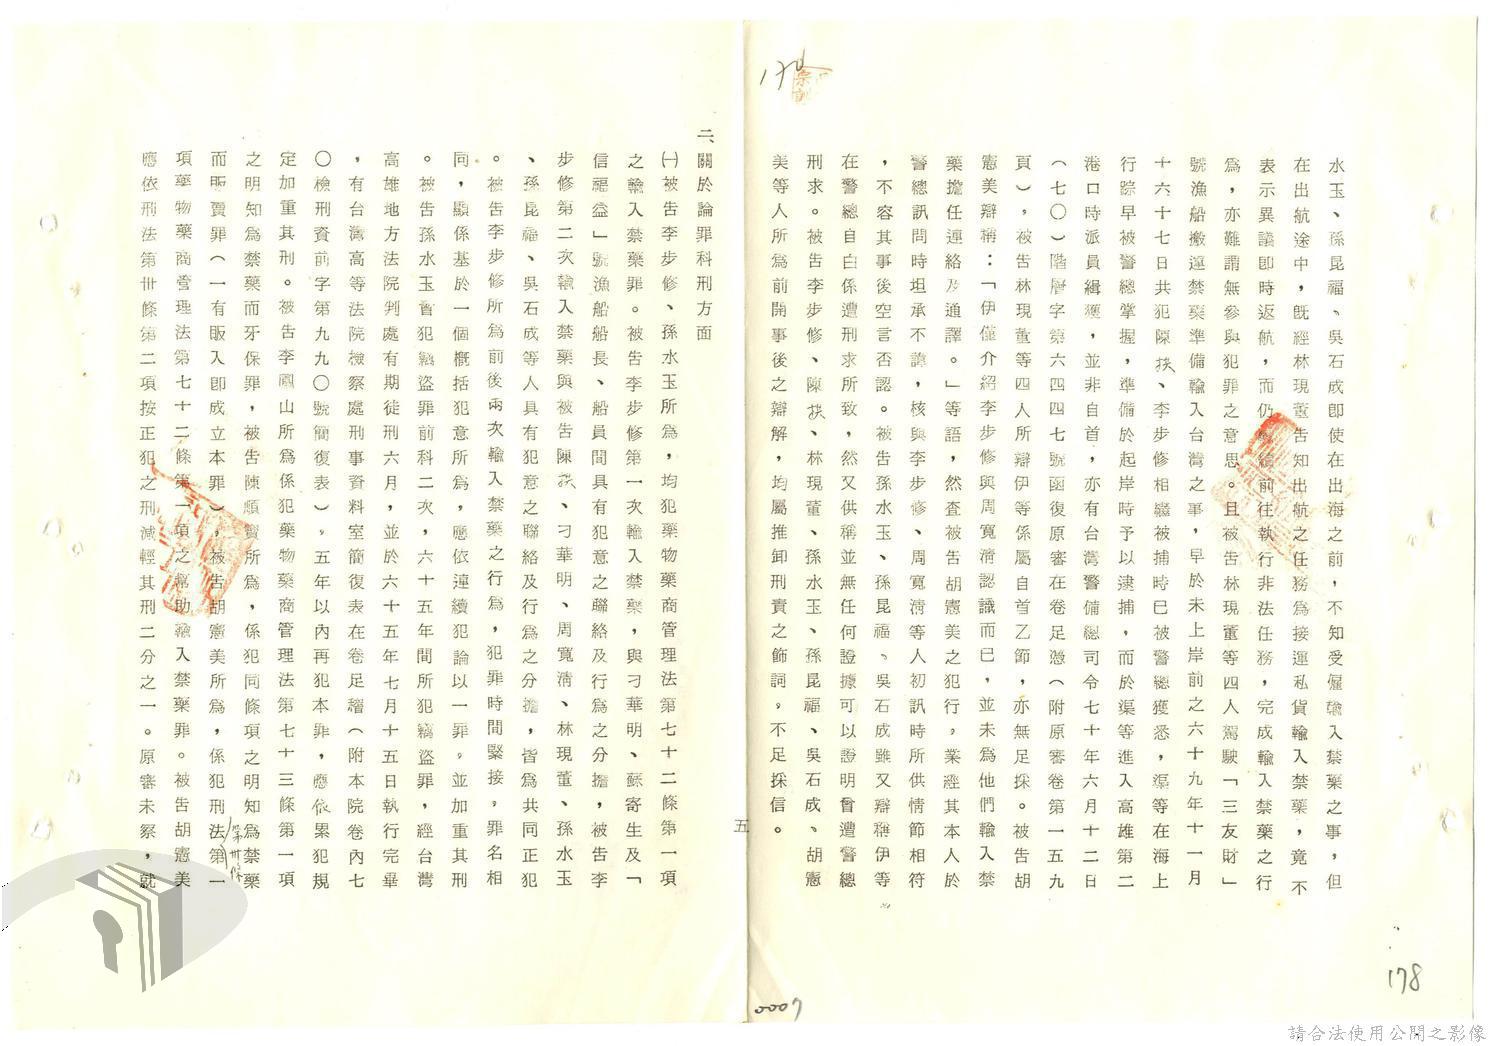 水玉、孫昆福、吳石成即使在出海之前,不知受僱輸入禁藥之事,但
在出航途中,既經林現董告知出航之任務為接運私貨輸入禁藥,竟不
表示異議即時返航,而仍繼續前往執行非法任務,完成輸入禁藥之行
為,亦難謂無參與犯罪之意思。且被告林現董等四人駕駛「三友財」
號漁船搬運禁藥準備輸入台灣之事,早於未上岸前之六十九年十一月
十六十七日共犯陳扶、李步修相繼被捕時已被警總獲悉,渠等在海上
行踪早被警總掌握,準備於起岸時予以逮捕,而於渠等進入高雄第二
港口時派員緝獲,並非自首,亦有台灣警備總司令七十年六月十二日
(七〇)階層字第六四四七號函復原審在卷足憑(附原審卷第一五九
頁),被告林現董等四人所辯伊等係屬自首乙節,亦無足採。被告胡
憲美辯稱:「伊僅介紹李步修與周寬清認識而已,並未為他們輸入禁
藥擔任連絡及通譯。」等語,然查被告胡憲美之犯行,業經其本人於
警總訊問時坦承不諱,核與李步修、周寬清等人初訊時所供情節相符
,不容其事後空言否認。被告孫水玉、孫昆福、吳石成雖又辯稱伊等
在警總自白係遭刑求所致,然又供稱並無任何證據可以證明曾遭警總
刑求。被告李步修、陳扶、林現董、孫水玉、孫昆福、吳石成、胡憲
美等人所為前開事後之辯解,均屬推卸刑責之飾詞,不足採信。
五
二、關於論罪科刑方面
㈠被告李步修、孫水玉所為,均犯藥物藥商管理法第七十二條第一項
之輸入禁藥罪。被告李步修第一次輸入禁藥,與刁華明、蘇寄生及「
信福益」號漁船船長、船員間具有犯意之聯絡及行為之分擔,被告李
步修第二次輸入禁藥與被告陳扶、刁華明、周寬清、林現董、孫水玉
、孫昆福、吳石成等人具有犯意之聯絡及行為之分擔,皆為共同正犯
。被告李步修所為前後兩次輸入禁藥之行為,犯罪時間緊接,罪名相
同,顯係基於一個概括犯意所為,應依連續犯論以一罪,並加重其刑
。被告孫水玉曾犯竊盜罪前科二次,六十五年間所犯竊盜罪,經台灣
高雄地方法院判處有期徒刑六月,並於六十五年七月十五日執行完畢
,有台灣高等法院檢察處刑事資料室簡復表在卷足稽(附本院卷內七
〇檢刑資前字第九九〇號簡復表),五年以內再犯本罪,應依累犯規
定加重其刑。被告李關山所為係犯藥物藥商管理法第七十三條第一項
之明知為禁藥而牙保罪,被告陳順寶所為,係犯同條項之明知為禁藥
而販賣罪(一有販入即成立本罪),被告胡憲美所為,係犯刑法第一
第卅條
項藥物藥商管理法第七十二條第一項之幫助輸入禁藥罪。被告胡憲美
應依刑法第卅條第二項按正犯之刑減輕其刑二分之一。原審未察,就
178
0007
請合法使用公開之影像